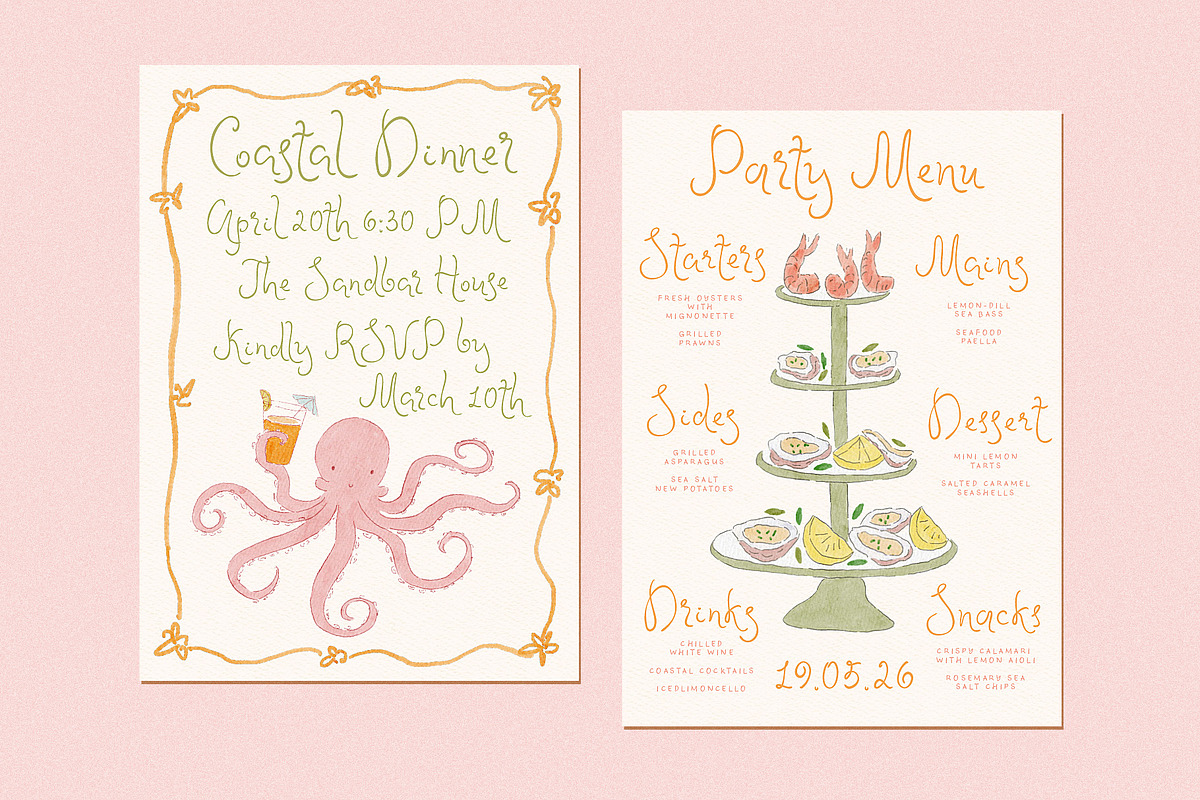 Coastal Dinner
April 20th 6:30 PM
The Sandbar House
Kindly RSVP by
March 10th
Party Menu
Starters
FRESH OYSTERS
WITH
MIGNONETTE
GRILLED
PRAWNS
Mains
LEMON-DILL
SEA BASS
SEAFOOD
PAELLA
Sides
GRILLED
ASPARAGUS
SEA SALT
NEW POTATOES
Dessert
MINI LEMON
TARTS
SALTED CARAMEL
SEASHELLS
Drinks
CHILLED
WHITE WINE
COASTAL COCKTAILS
ICEDLIMONCELLO
Snacks
CRISPY CALAMARI
WITH LEMON AIOLI
ROSEMARY SEA
SALT CHIPS
19.05.26